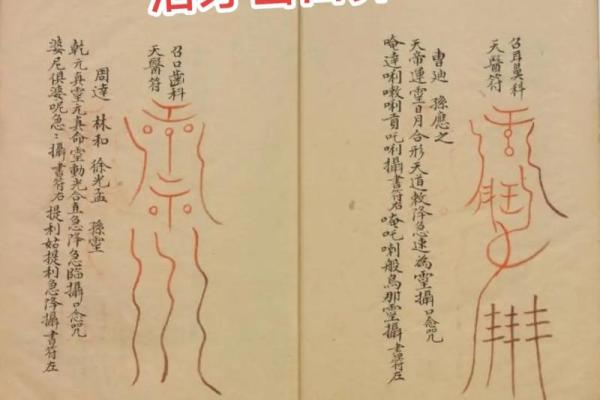 召耳鼻科
天醫符
曹廸 孫應之
天帝運靈日月合形天道敕降急速為靈攝口念咒
唵達唎嗽唎賁吒唎攝書符右唵吒喇般烏那靈攝書符左
召口齒科
天醫符
周達 林和 徐光孟 孫靈
乾元真靈元真命靈動光合直急降急臨攝口念咒
婆尼俱婆呢急：攝書符右提利姑提利急降攝書符左